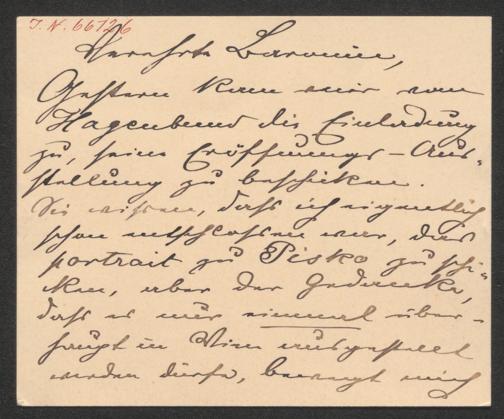 J. N. 66726
Verehrte Baronin,
Gestern kam mir vom
Hagenbund die Einladung
zu, seine Eröffnungs-Aus-
stellung zu beschicken.
Sie wissen, dass ich eigentlich
schon entschlossen war, das
portrait zu Pisko zu schi-
cken, aber der Gedanke,
dass es nur einmal über-
haupt in Wien ausgestellt
werden dürfe, bewegt mich